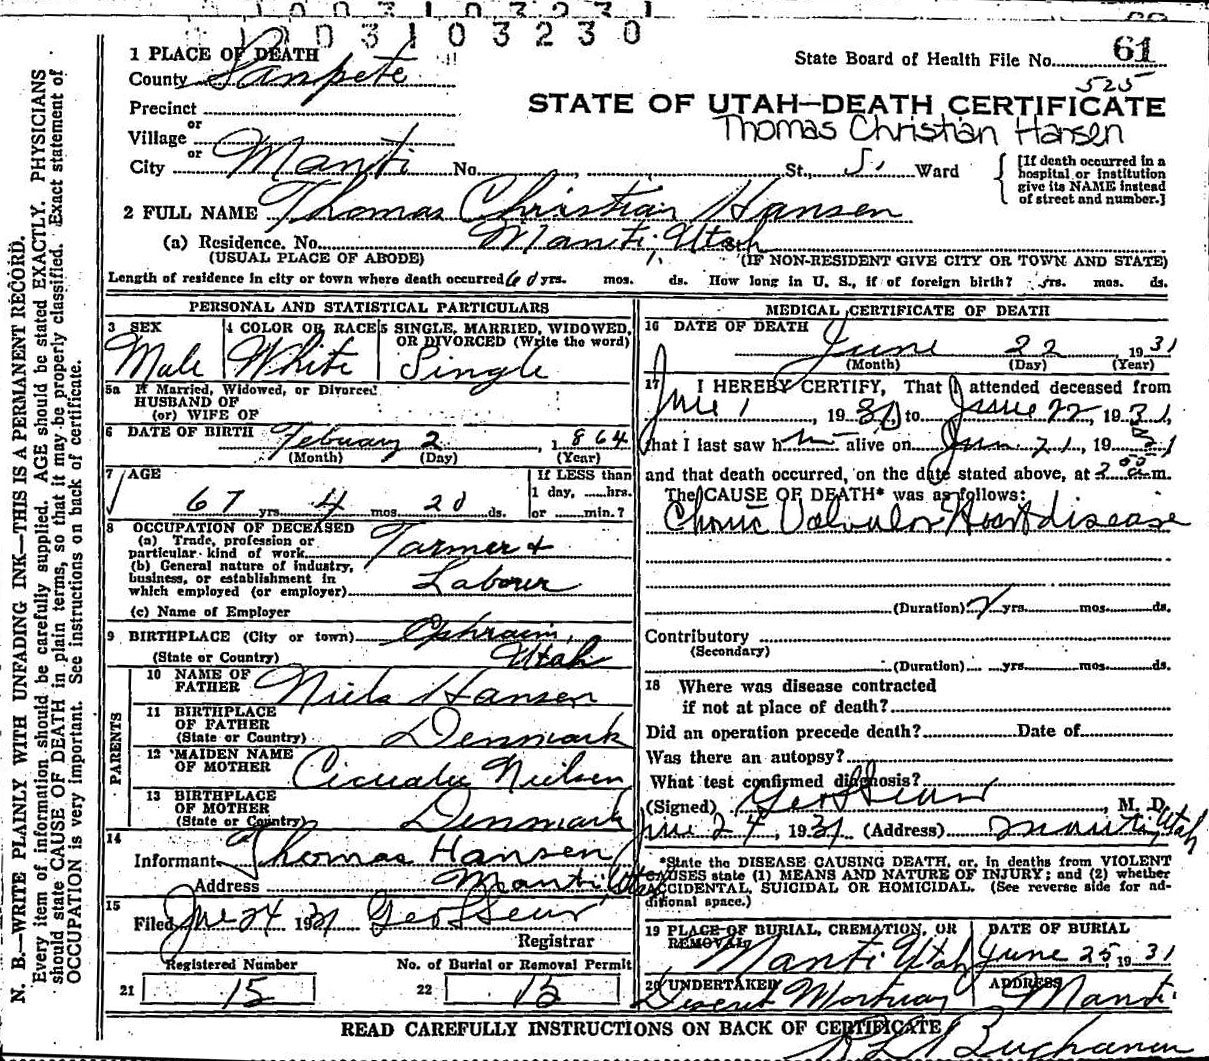 1003103230
1 PLACE OF DEATH
State Board of Health File No. 61
County Sanpete
525
Precinct
STATE OF UTAH—DEATH CERTIFICATE
or
Village
Thomas Christian Hansen
or
City Manti No. St., 5 Ward
[If death occurred in a
hospital or institution
give its NAME instead
of street and number.]
2 FULL NAME Thomas Christian Hansen
(a) Residence. No. Manti, Utah
(USUAL PLACE OF ABODE) (IF NON-RESIDENT GIVE CITY OR TOWN AND STATE)
Length of residence in city or town where death occurred 60 yrs. mos. ds. How long in U. S., if of foreign birth? yrs. mos. ds.
PERSONAL AND STATISTICAL PARTICULARS
3 SEX
Male
4 COLOR OR RACE
White
5 SINGLE, MARRIED, WIDOWED,
OR DIVORCED (Write the word)
Single
5a If Married, Widowed, or Divorced
HUSBAND OF
(or) WIFE OF
6 DATE OF BIRTH February 2, 1864
(Month) (Day) (Year)
7 AGE
67 yrs. 4 mos. 20 ds.
If LESS than
1 day, hrs.
or min.?
8 OCCUPATION OF DECEASED
(a) Trade, profession or
particular kind of work Farmer +
(b) General nature of industry,
business, or establishment in
which employed (or employer) Laborer
(c) Name of Employer
9 BIRTHPLACE (City or town) Ephraim,
(State or Country) Utah
PARENTS
10 NAME OF
FATHER Niels Hansen
11 BIRTHPLACE
OF FATHER
(State or Country) Denmark
12 MAIDEN NAME
OF MOTHER Nielsen
13 BIRTHPLACE
OF MOTHER
(State or Country) Denmark
14
Informant Thomas Hansen
Address Manti Utah
15
Filed June 24 1931
Registrar
Registered Number No. of Burial or Removal Permit
21 15 22 15
MEDICAL CERTIFICATE OF DEATH
16 DATE OF DEATH
June 22 1931
(Month) (Day) (Year)
17 I HEREBY CERTIFY, That I attended deceased from
June 1, 1931 to June 22 1931,
that I last saw him alive on June 21, 1931
and that death occurred, on the date stated above, at m.
The CAUSE OF DEATH* was as follows:
Chonic Valvular Heart disease
(Duration) yrs. mos. ds.
Contributory
(Secondary)
(Duration) yrs. mos. ds.
18 Where was disease contracted
if not at place of death?
Did an operation precede death? Date of
Was there an autopsy?
What test confirmed diagnosis?
(Signed) , M. D.
June 24, 1931 (Address) Manti, Utah
*State the DISEASE CAUSING DEATH, or, in deaths from VIOLENT
CAUSES state (1) MEANS AND NATURE OF INJURY; and (2) whether
ACCIDENTAL, SUICIDAL OR HOMICIDAL. (See reverse side for ad-
ditional space.)
19 PLACE OF BURIAL, CREMATION, OR
REMOVAL
Manti Utah
DATE OF BURIAL
June 25, 1931
20 UNDERTAKER
Deseret Mortuary
ADDRESS
Manti
READ CAREFULLY INSTRUCTIONS ON BACK OF CERTIFICATE
Buchanan
N. B.—WRITE PLAINLY WITH UNFADING INK—THIS IS A PERMANENT RECORD.
Every item of information should be carefully supplied. AGE should be stated EXACTLY. PHYSICIANS
should state CAUSE OF DEATH in plain terms, so that it may be properly classified. Exact statement of
OCCUPATION is very important. See instructions on back of certificate.